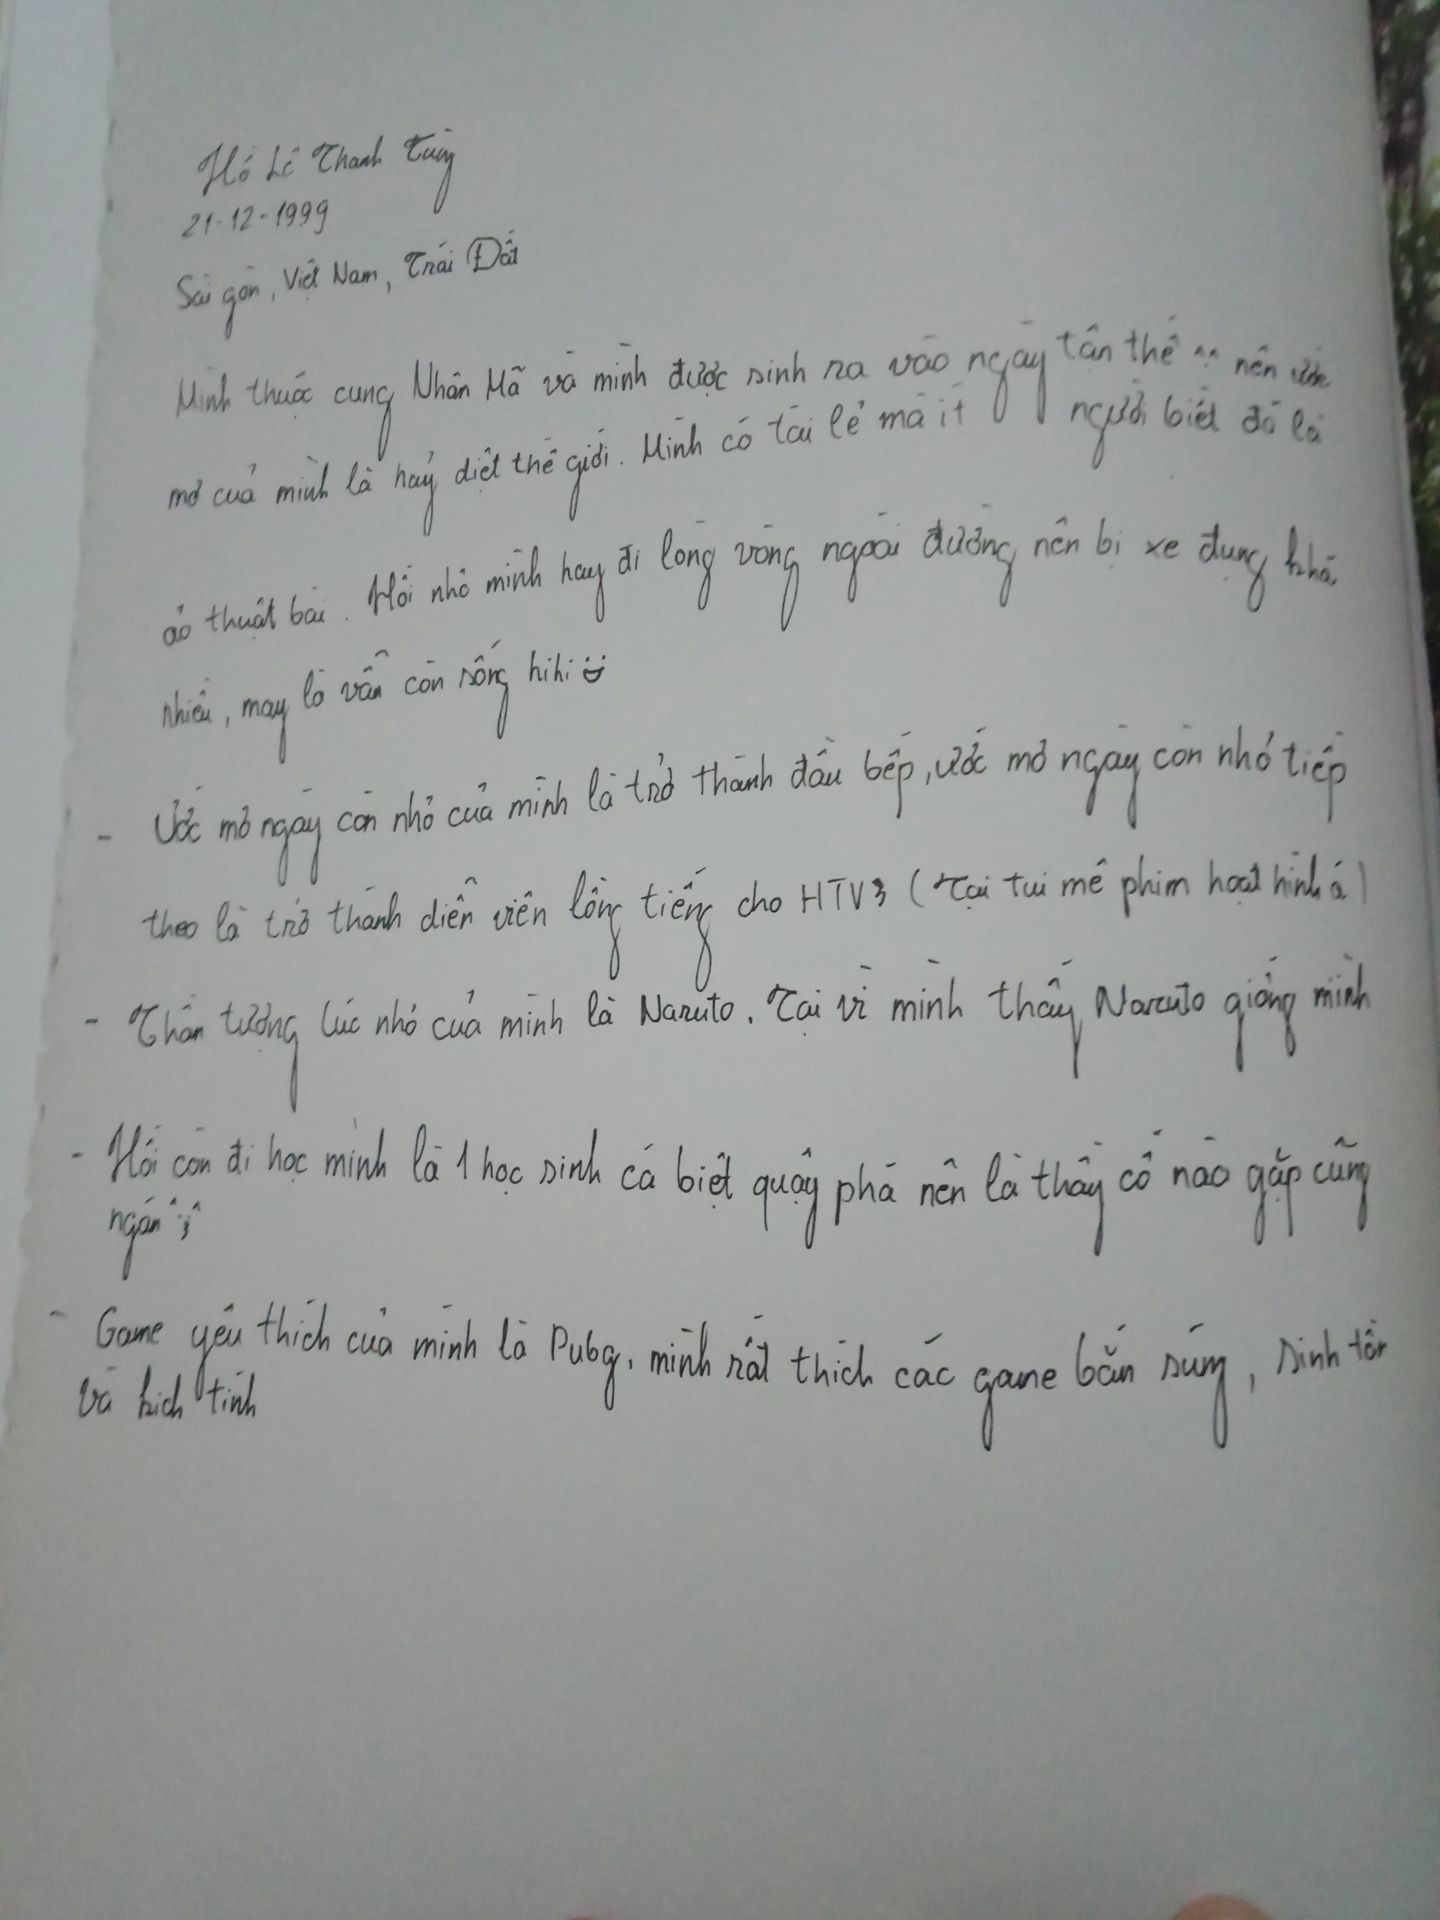 Hồ Lê Thanh Tùng
21-12-1999
Sài gòn, Việt Nam, Trái Đất
Mình thuộc cung Nhân Mã và mình được sinh ra vào ngày tận thế ^^ nên ước
mơ của mình là hủy diệt thế giới. Mình có tài lẻ mà ít người biết đó là
ảo thuật bài. Hồi nhỏ mình hay đi lòng vòng ngoài đường nên bị xe đụng khá
nhiều, may là vẫn còn sống hihi
- Ước mơ ngày còn nhỏ của mình là trở thành đầu bếp, ước mơ ngày còn nhỏ tiếp
theo là trở thành diễn viên lồng tiếng cho HTV3 (Tại tui mê phim hoạt hình á)
- Thần tượng lúc nhỏ của mình là Naruto. Tại vì mình thấy Naruto giống mình
- Hồi còn đi học mình là 1 học sinh cá biệt quậy phá nên là thầy cô nào gặp cũng
ngán
- Game yêu thích của mình là Pubg, mình rất thích các game bắn súng, sinh tồn
và kịch tính